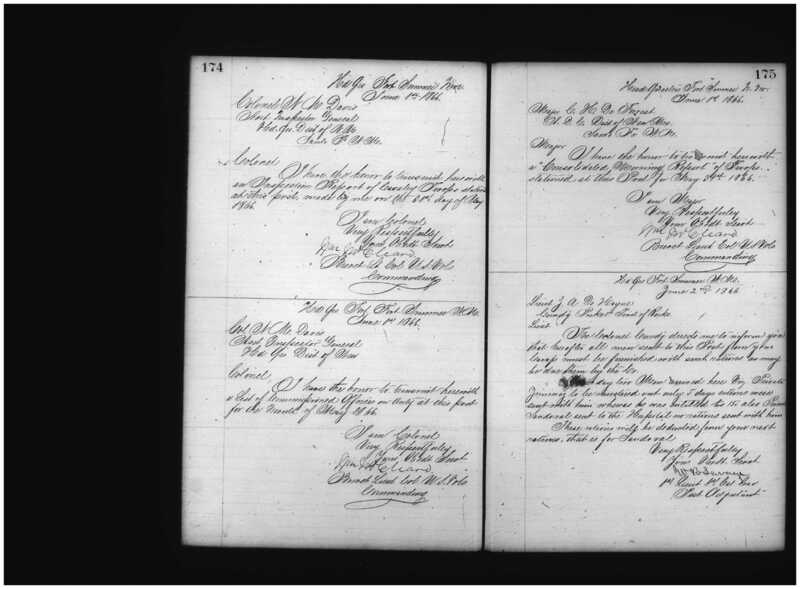 174
Hd Qrs Fort Sumner N. Mex
June 1st 1866.
Colonel N. H. Davis
Asst Inspector General
Hd. Qrs. Dist of N. M.
Santa Fe N. Me.
Colonel
I have the honor to transmit herewith
an Inspection Report of Cavalry Troops stationed
at this post, made by me on the 31st day of May
1866.
I am Colonel
Very Respectfully
Your Obedt. Servt
Brevet Lt. Col. U.S. Vols
Commanding
Hd Qrs Fort Sumner N. Me.
June 1st 1866.
Col. N. H. Davis
Asst Inspector General
Hd Qrs Dist of New
Colonel
I have the honor to transmit herewith
a List of Commissioned Officers on duty at this post
for the Month of May 1866.
I am Colonel
Very Respectfully
Your Obedt. Servt
Brevet Lieut Col. U.S. Vols
Commanding
175
Head Quarters Fort Sumner N. Mex.
June 1st 1866.
Major C. H. De Forrest
A. D. C. Dist of New Mex.
Santa Fe N. M.
Major
I have the honor to transmit herewith
a "Consolidated Morning Report" of Troops
stationed at this Post for May 31st 1866.
I am Major
Very Respectfully
Your Obedt. Servt
Brevet Lieut Col. U.S. Vols
Commanding
Hd Qrs Fort Sumner N. M.
June 2nd 1866
Lieut J. A. De Hague
Comdg Picket
Lieut
The Colonel Comdg directs me to inform you
that hereafter all men sent to this Post from your
Camp must be furnished with such rations as may
be due them by the Co.
day two Men arrived here Viz Private
to be mustered out only 5 days rations were
sent with him whereas he was entitled to 10 also Private
Sandoval sent to the Hospital no rations sent with him
These rations will be deducted from your next
rations, that is for Sandoval
Very Respectfully
Your Obedt. Servt
1st Lieut 1st Cal. Vols
Post Adjutant